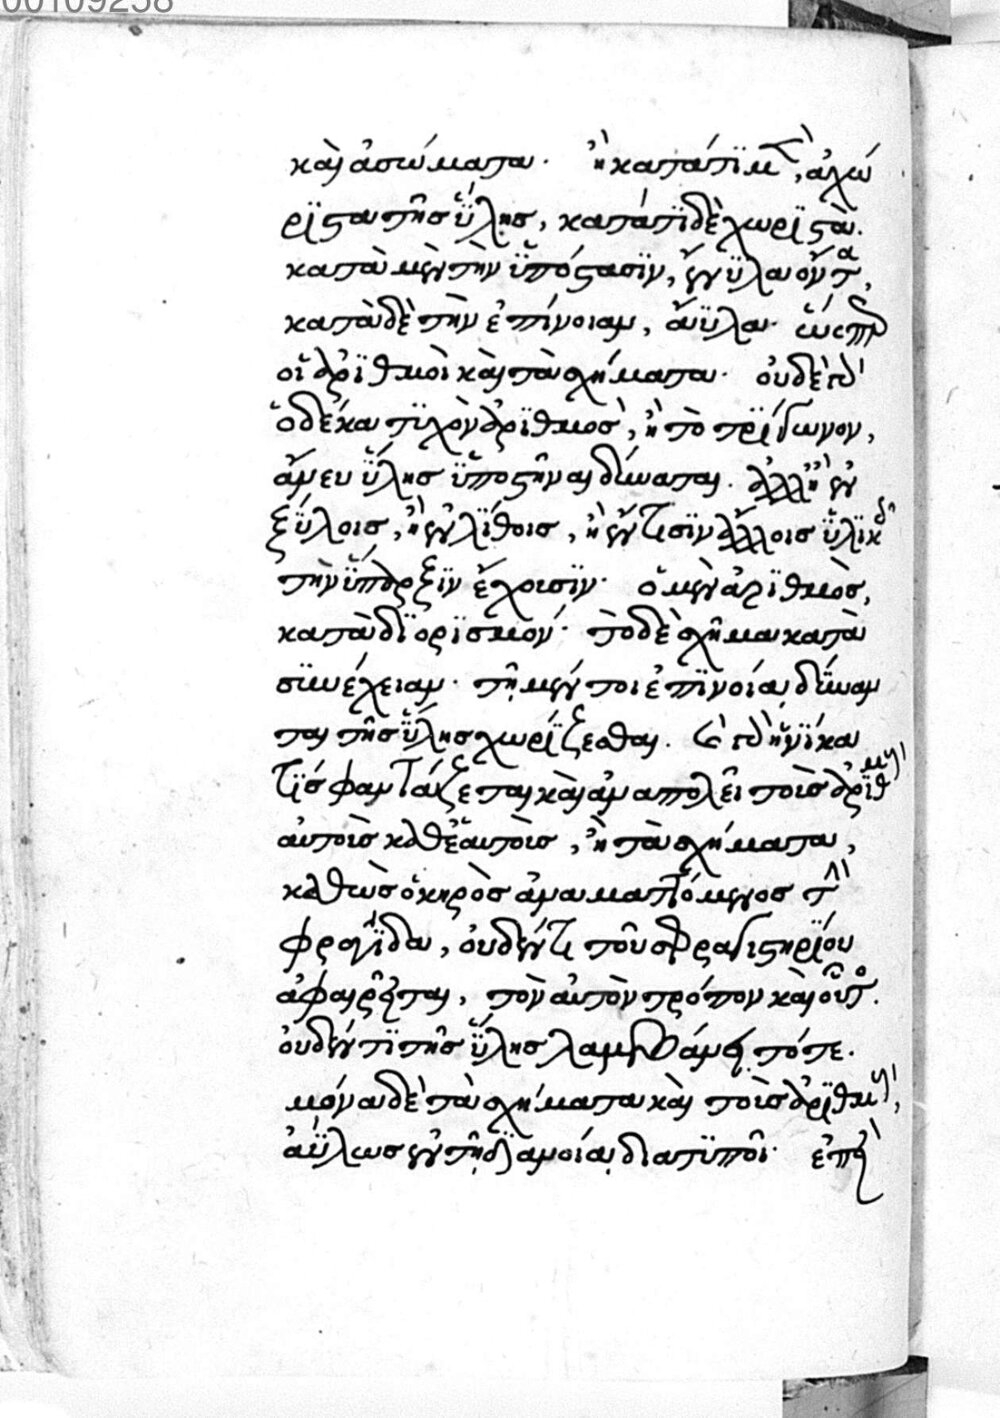 00109258
καὶ ἀσώματα. ἢ κατά τι μὲν, ἀχώ
ριστα τῆς ὕλης, κατά τι δὲ χωριστά.
κατὰ μὲν τὴν ὑπόστασιν, ἔνυλα ὄντα,
κατὰ δὲ τὴν ἐπίνοιαν, ἄϋλα. ὥσπερ
οἱ ἀριθμοὶ καὶ τὰ σχήματα. οὐδὲ γὰρ
ὁ δέκα τυχὸν ἀριθμὸς, ἢ τὸ τρίγωνον,
ἄνευ ὕλης ὑποστῆναι δύναται. ἀλλ' ἢ ἐν
ξύλοις, ἢ ἐν λίθοις, ἢ ἔν τισιν ἄλλοις ὑλικοῖς
τὴν ὕπαρξιν ἔχουσιν. ὁ μὲν ἀριθμὸς,
κατὰ διορισμόν. τὸ δὲ σχῆμα κατὰ
συνέχειαν. τῇ μέν τοι ἐπινοίᾳ δύναν
ται τῆς ὕλης χωρίζεσθαι. καὶ γὰρ ἡνίκα
τὶς φαντάζεται καὶ ἀναπολεῖ τοὺς ἀριθμοὺς
αὐτοὺς καθ' ἑαυτοὺς, ἢ τὰ σχήματα,
καθὼς ὁ κηρὸς ἀναματτόμενος τὴν
φραγῖδα, οὐδέν τι τοῦ σφραγιστηρίου
ἀφαιρεῖται, τὸν αὐτὸν τρόπον καὶ οὗτος
οὐδέν τι τῆς ὕλης λαμβάνει τότε.
μόνα δὲ τὰ σχήματα καὶ τοὺς ἀριθμοὺς,
ἀΰλως ἐν τῇ διανοίᾳ διατυποῖ. ἐπεὶ